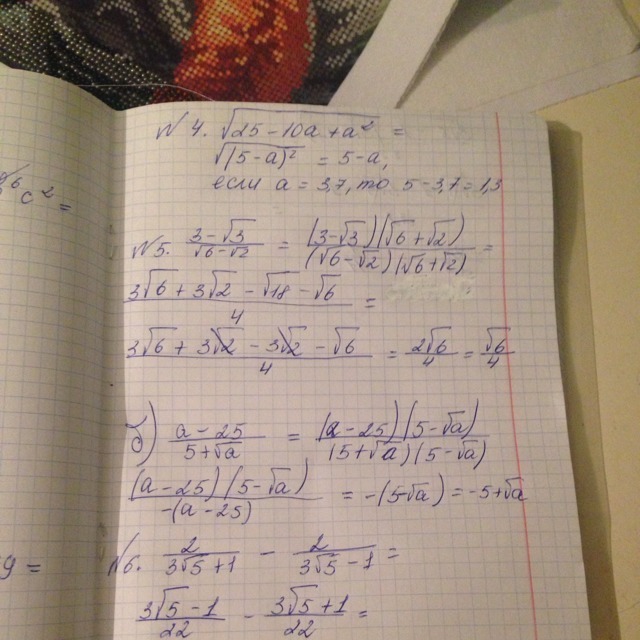 № 4. √(25 - 10a + a²) =
√((5-a)²) = 5-a,
если a = 3,7, то 5-3,7=1,3
№5. (3-√3)/(√6-√2) = ((3-√3)(√6+√2))/((√6-√2)(√6+√2)) =
(3√6 + 3√2 - √18 - √6)/4 =
(3√6 + 3√2 - 3√2 - √6)/4 = 2√6/4 = √6/4
б) (a-25)/(5+√a) = ((a-25)(5-√a))/((5+√a)(5-√a))
((a-25)(5-√a))/(-(a-25)) = -(5-√a) = -5+√a
№6. 2/(3√5+1) - 2/(3√5-1) =
(3√5-1)/22 - (3√5+1)/22 =
c² =
=